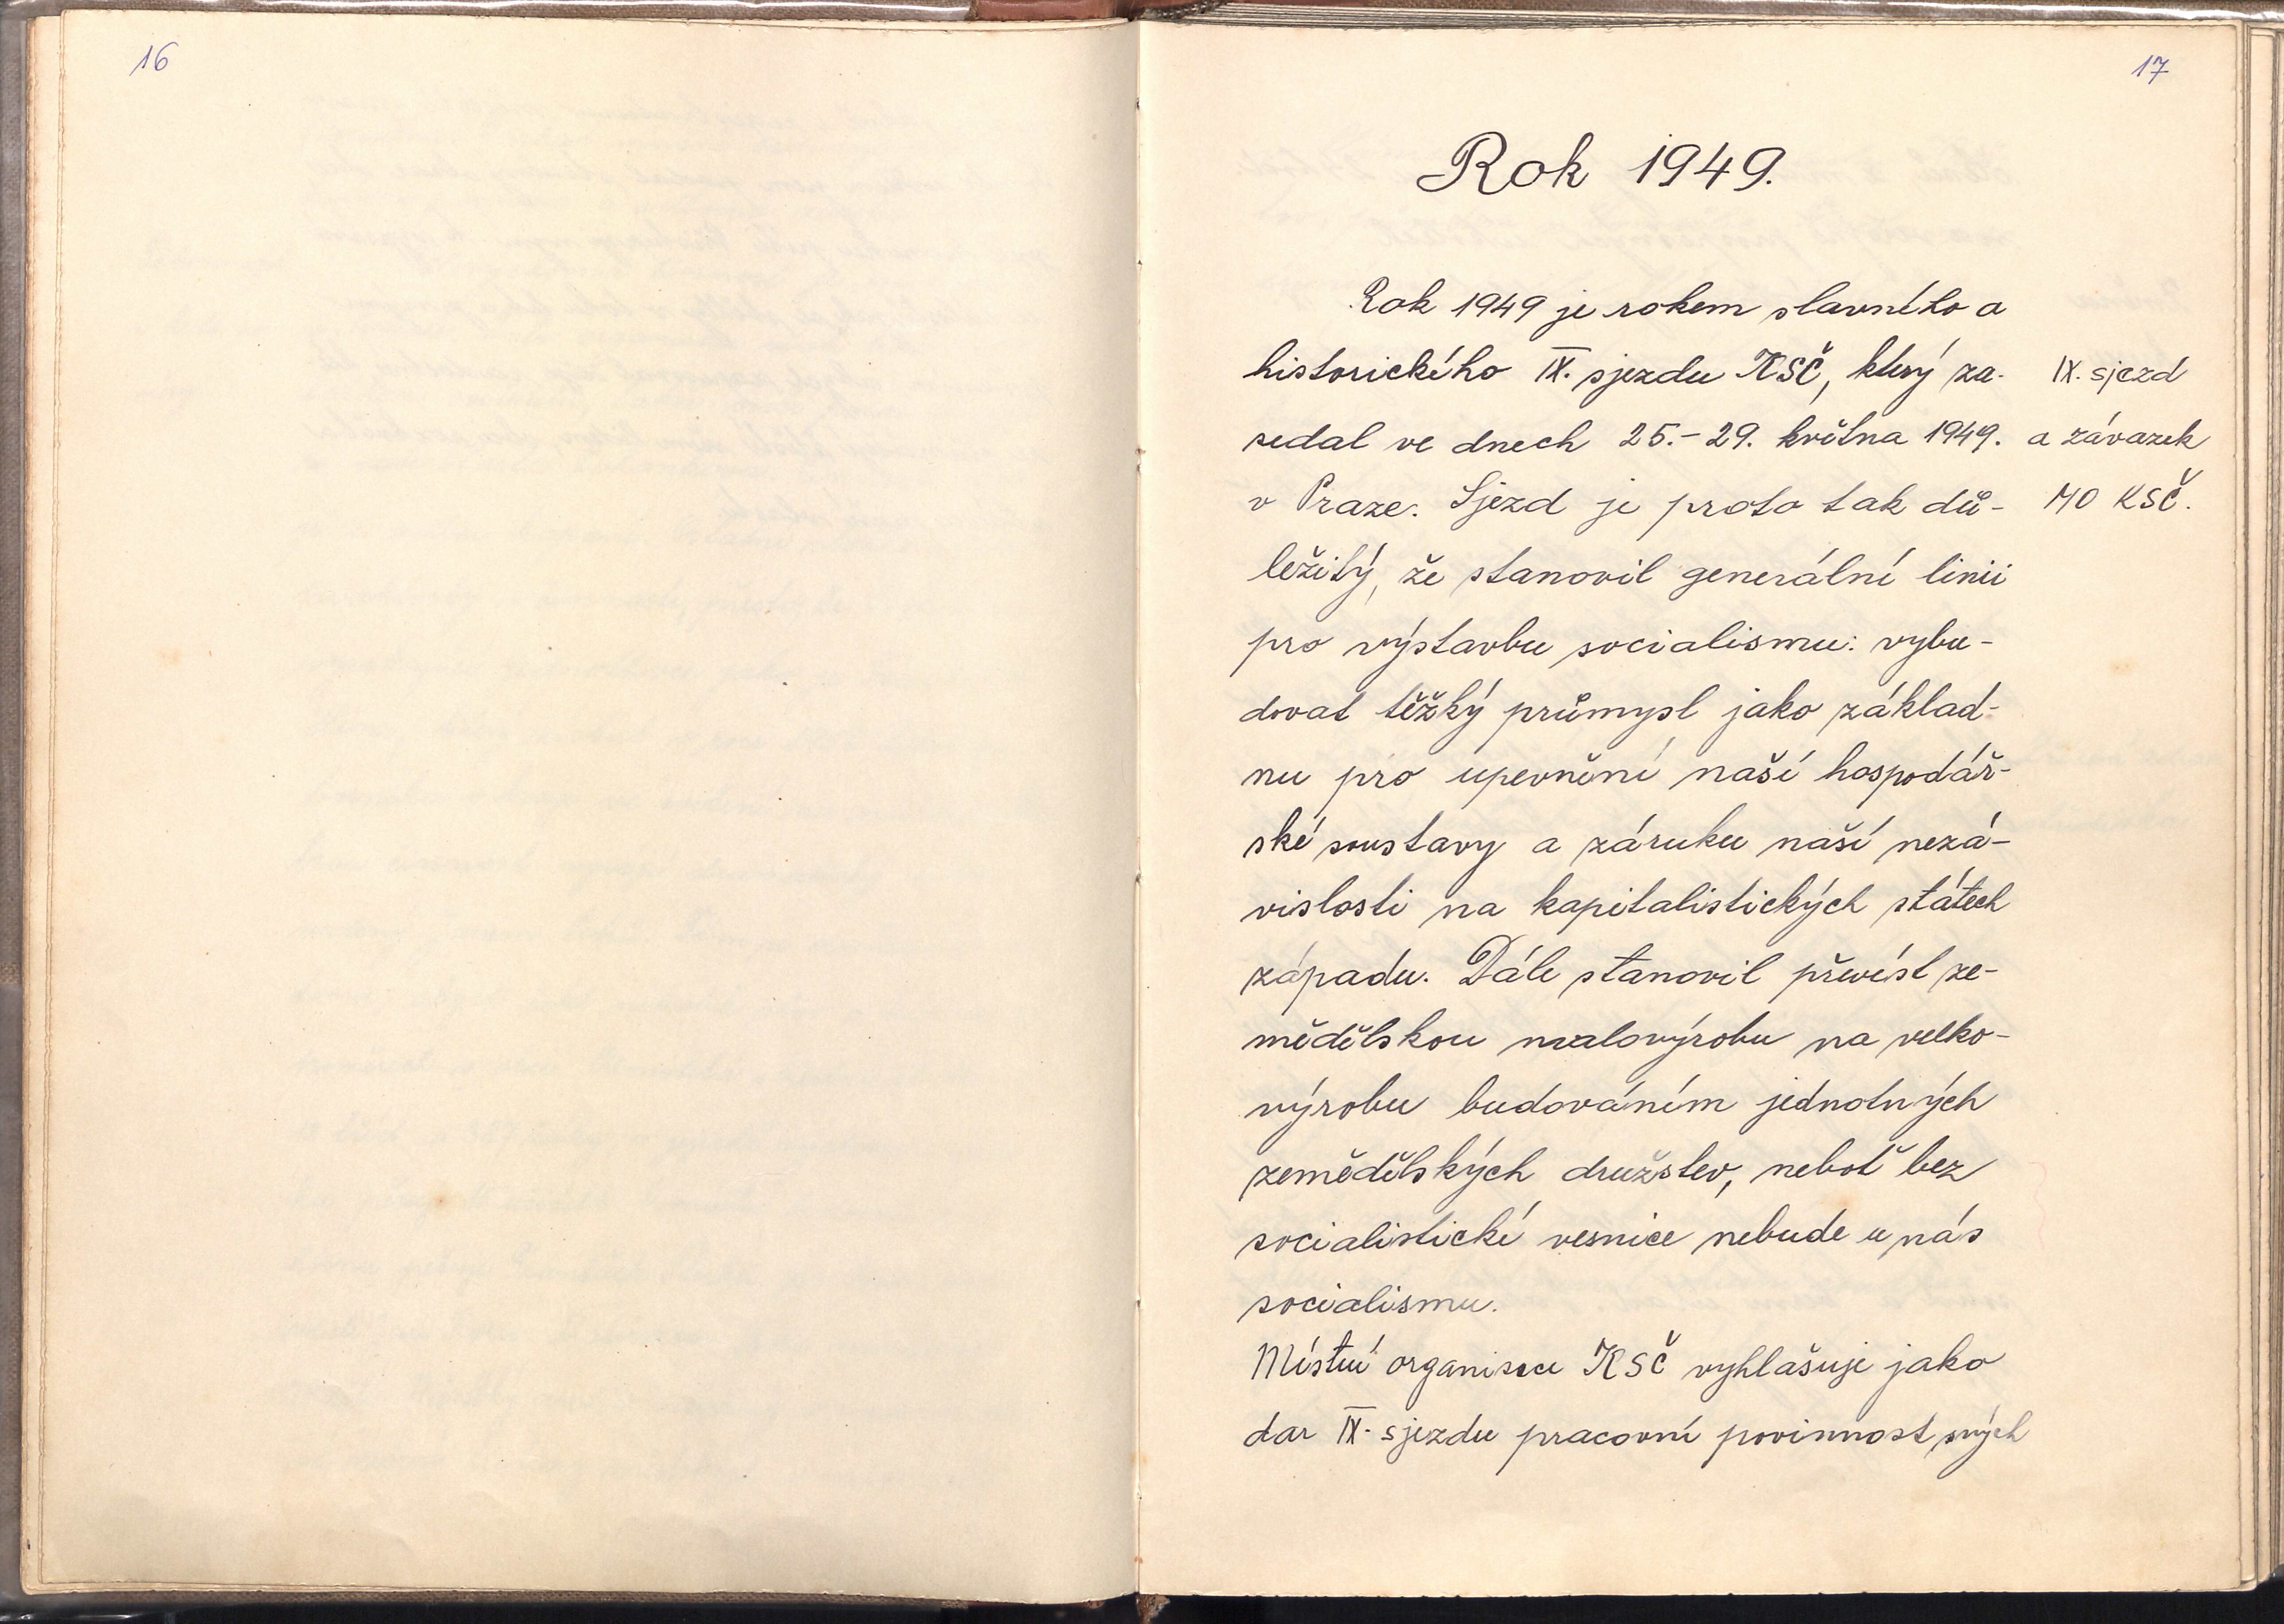 16
17
Rok 1949.
Rok 1949 je rokem slavného a
historického IX. sjezdu KSČ, který za-
sedal ve dnech 25.-29. května 1949.
v Praze. Sjezd je proto tak dů-
ležitý, že stanovil generální linii
pro výstavbu socialismu: vybu-
dovat těžký průmysl jako základ-
nu pro upevnění naší hospodář-
ské soustavy a záruku naší nezá-
vislosti na kapitalistických státech
západu. Dále stanovil převést ze-
mědělskou malovýrobu na velko-
výrobu budováním jednotných
zemědělských družstev, neboť bez
socialistické vesnice nebude u nás
socialismu.
Místní organisace KSČ vyhlašuje jako
dar IX. sjezdu pracovní povinnost svých
IX. sjezd
a závazek
MO KSČ.